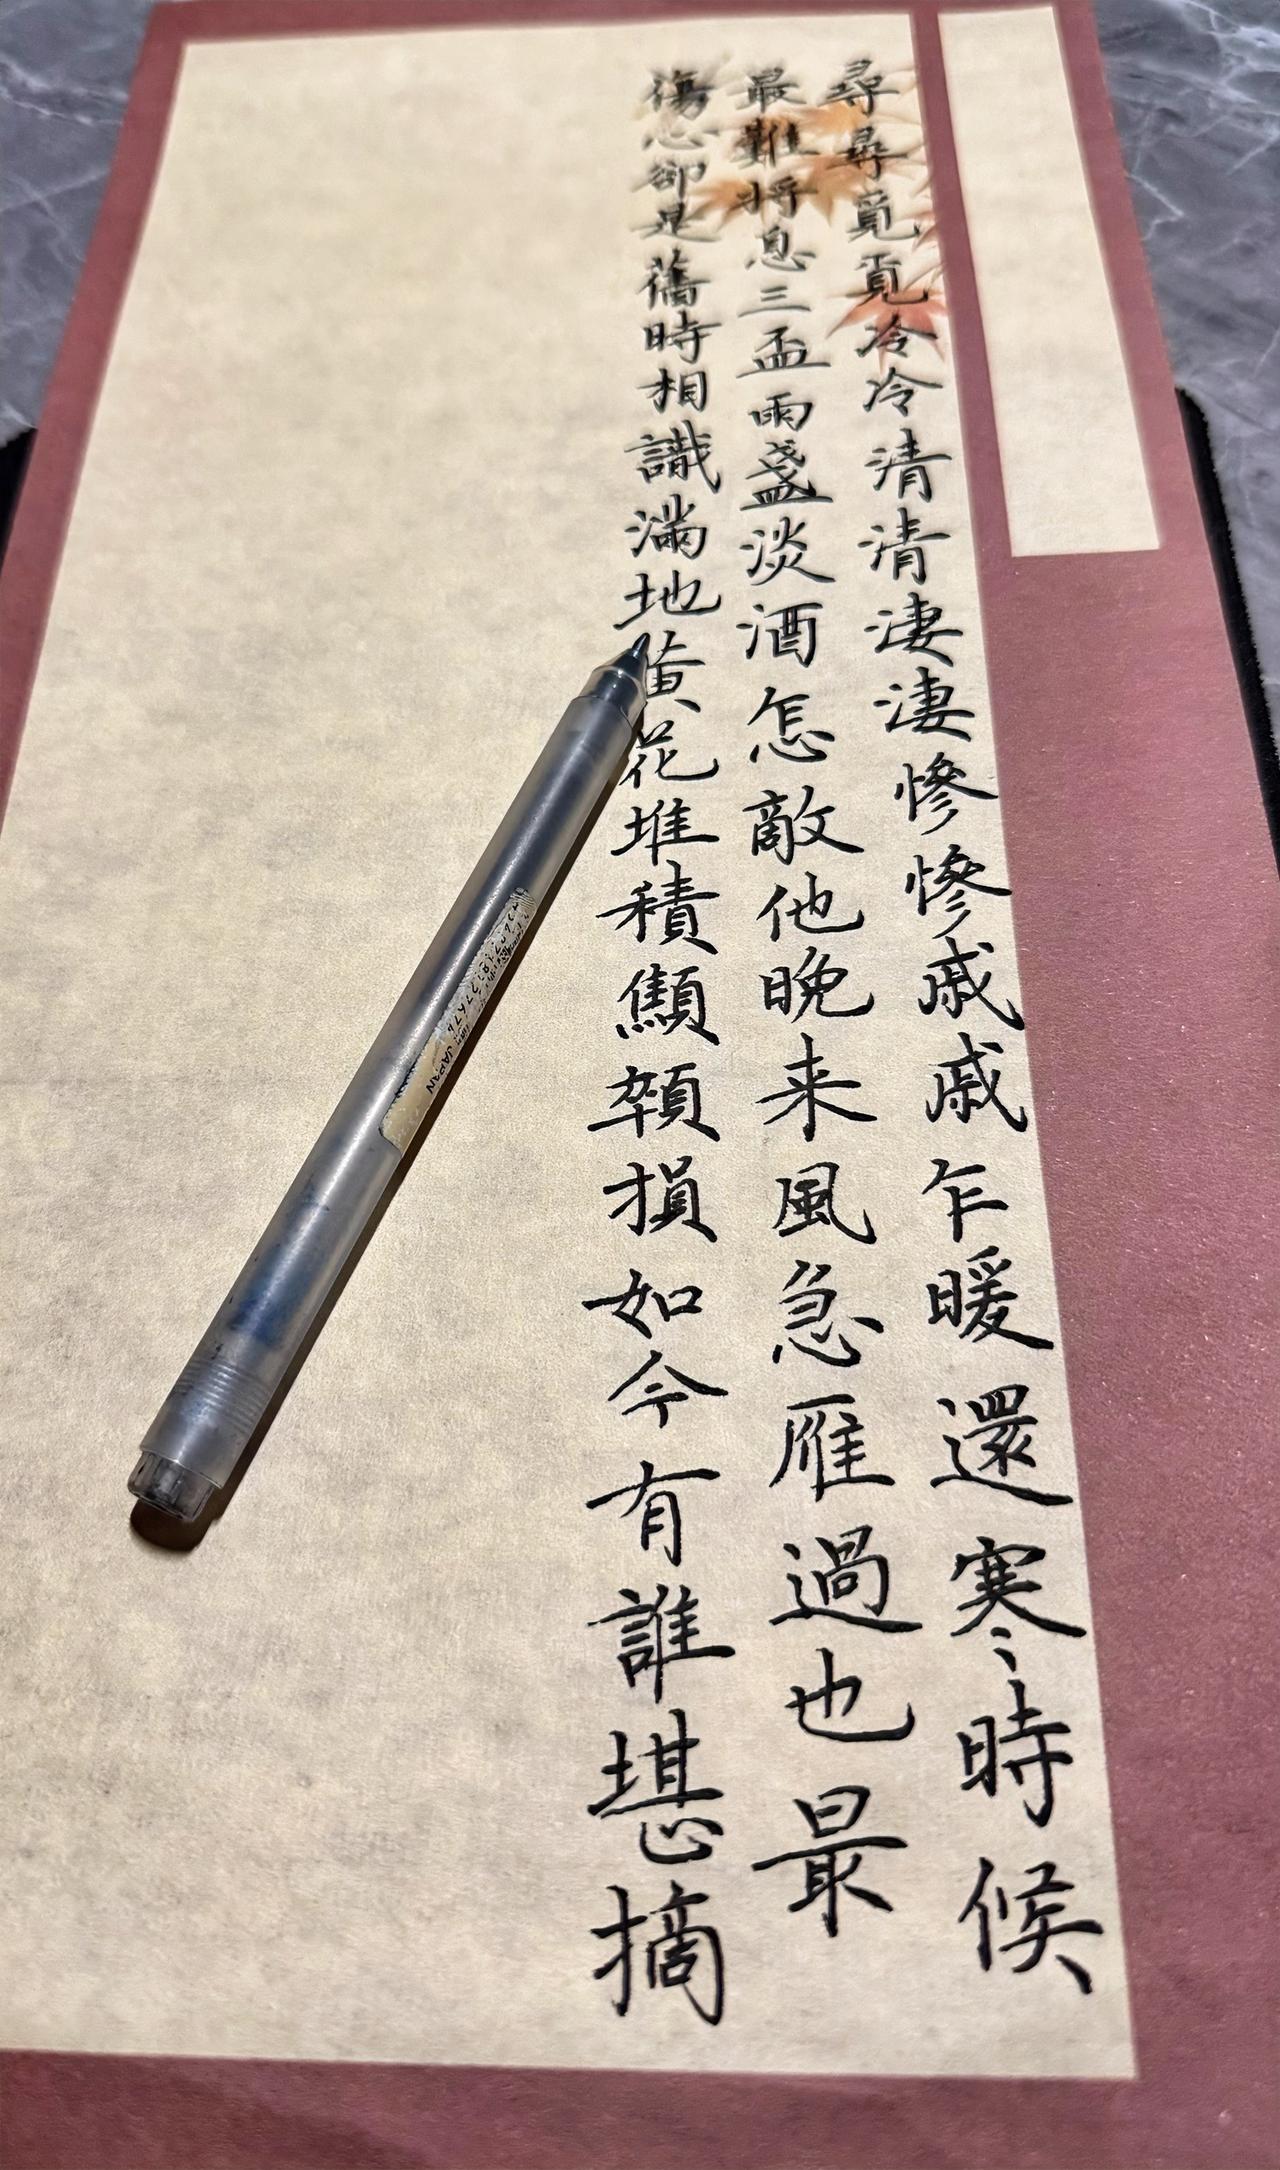 尋尋覓覓冷冷清清淒淒慘慘戚戚乍暖還寒時候
最難將息三盃兩盞淡酒怎敵他晚来風急雁過也最
傷心卻是舊時相識滿地黃花堆積顦顇損如今有誰堪摘
JAPAN